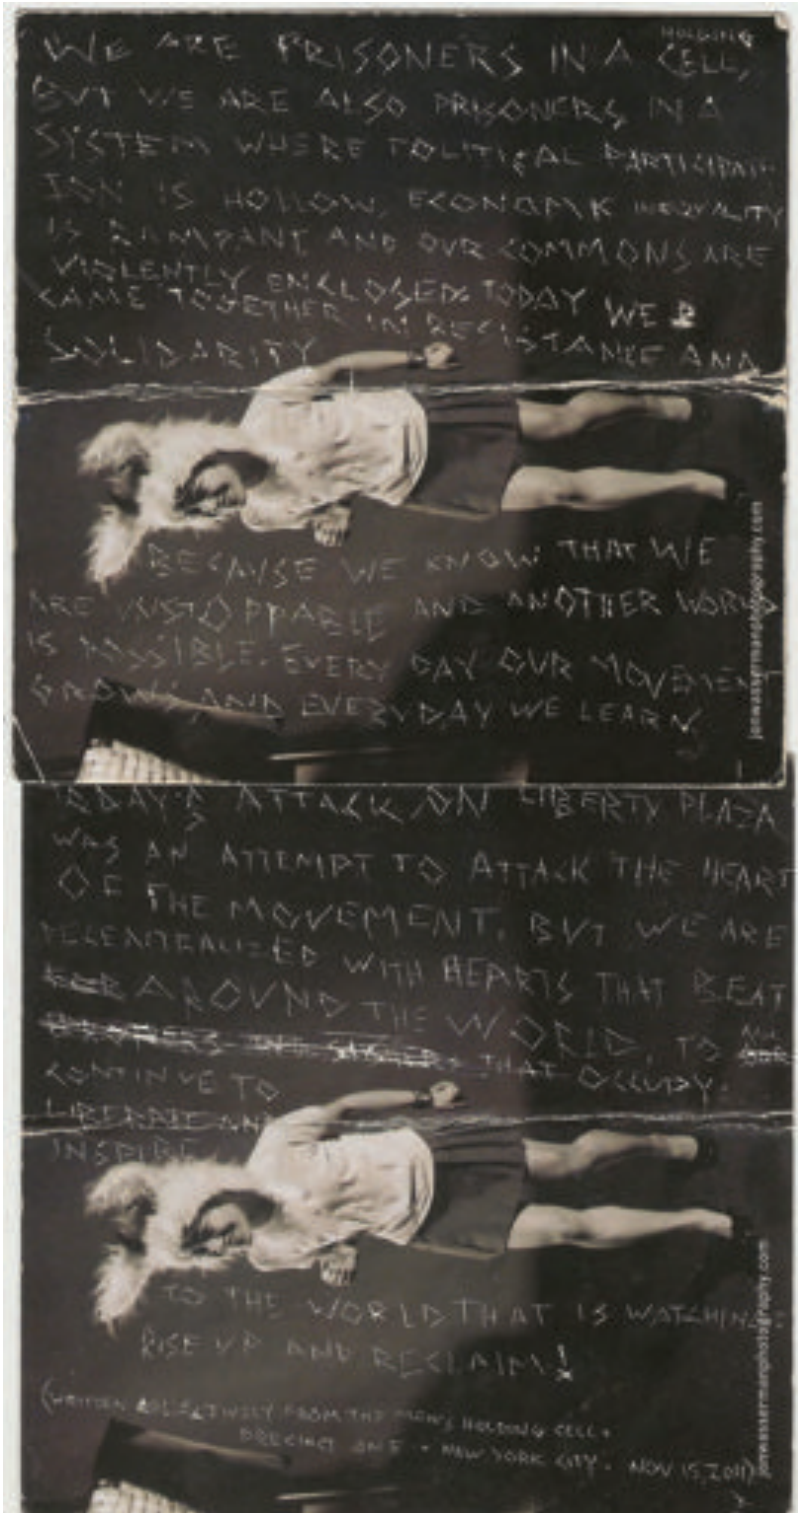 HOLDING
WE ARE PRISONERS IN A CELL,
BUT WE ARE ALSO PRISONERS IN A
SYSTEM WHERE POLITICAL PARTICIPAT-
ION IS HOLLOW, ECONOMIK INEQUALITY
IS RAMPANT AND OUR COMMONS ARE
VIOLENTLY ENCLOSED. TODAY WE
CAME TOGETHER IN RESISTANCE AND
SOLIDARITY
BECAUSE WE KNOW THAT WE
ARE UNSTOPPABLE AND ANOTHER WORLD
IS POSSIBLE. EVERY DAY OUR MOVEMENT
GROWS AND EVERYDAY WE LEARN.
jonwassermanphotography.com
TODAY'S ATTACK ON LIBERTY PLAZA
WAS AN ATTEMPT TO ATTACK THE HEART
OF THE MOVEMENT. BUT WE ARE
DECENTRALIZED WITH HEARTS THAT BEAT
AROUND THE WORLD, TO
THAT OCCUPY.
CONTINUE TO
LIBERATE AND
INSPIRE.
TO THE WORLD THAT IS WATCHING:
RISE UP AND RECLAIM!
(WRITTEN COLLECTIVELY FROM THE MEN'S HOLDING CELL.
PRECINCT ONE. NEW YORK CITY. NOV 15, 2011)
jonwassermanphotography.com